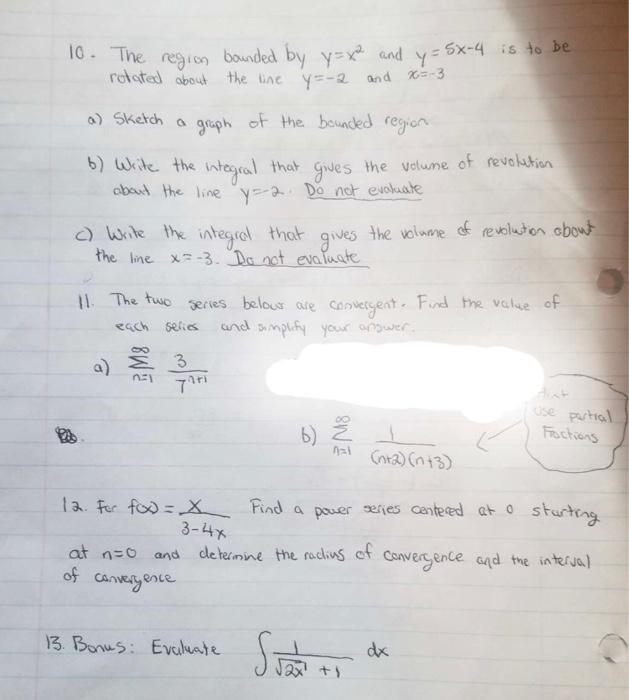 10. The region bounded by y=x² and y=5x-4 is to be
rotated about the line y=-2 and x=-3
a) Sketch a graph of the bounded region
b) Write the integral that gives the volume of revolution
about the line y=-2. Do not evaluate
c) Write the integral that gives the volume of revolution about
the line x=-3. Do not evaluate
11. The two series below are convergent. Find the value of
each series and simplify your answer.
a) ∑_{n=1}^{∞} 3/7^{n+1}
Hint
Use partial
Fractions
b) ∑_{n=1}^{∞} 1/((n+2)(n+3))
12. For f(x) = x/(3-4x) Find a power series centered at 0 starting
at n=0 and determine the radius of convergence and the interval
of convergence
13. Bonus: Evaluate ∫ 1/(√2x +1) dx